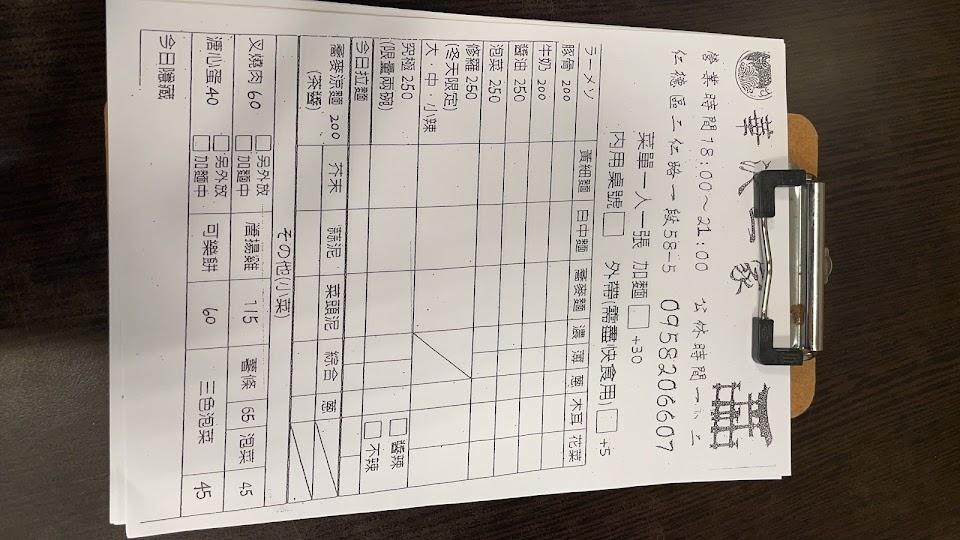 華
家
營業時間18:00~21:00 公休時間一、二
仁德區二仁路一段58-5 0958206607
菜單一人一張 加麵□+30
內用桌號□ 外帶(需盡快食用)□+5
ラーメン 黃細麵 日中麵 蕎麥麵 濃 薄 蔥 木耳 花菜
豚骨 200
牛奶 200
醬油 250
泡菜 250
修羅 250
(冬天限定)
大・中・小辣
究極 250
(限量兩碗)
今日拉麵 □醬辣 □不辣
蕎麥涼麵 200 芥末 蒜泥 菜頭泥 綜合 蔥
(茶醬)
その他(小菜)
叉燒肉 60 □另外放 □加麵中 唐揚雞 115 薯條 65 泡菜 45
溏心蛋40 □另外放 □加麵中 可樂餅 60 三色泡菜 45
今日隱藏